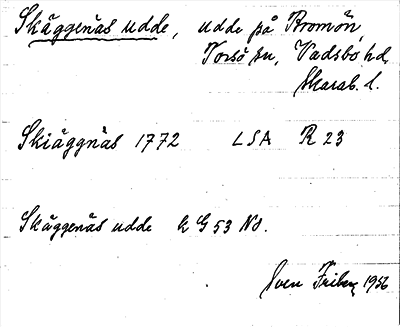 Skäggenäs udde, udde på Bromön,
Torsö sn, Vadsbo hd,
Skarab. l.
Skiäggnäs 1772 LSA R 23
Skäggenäs udde k G 53 No.
Sven Friberg 1956